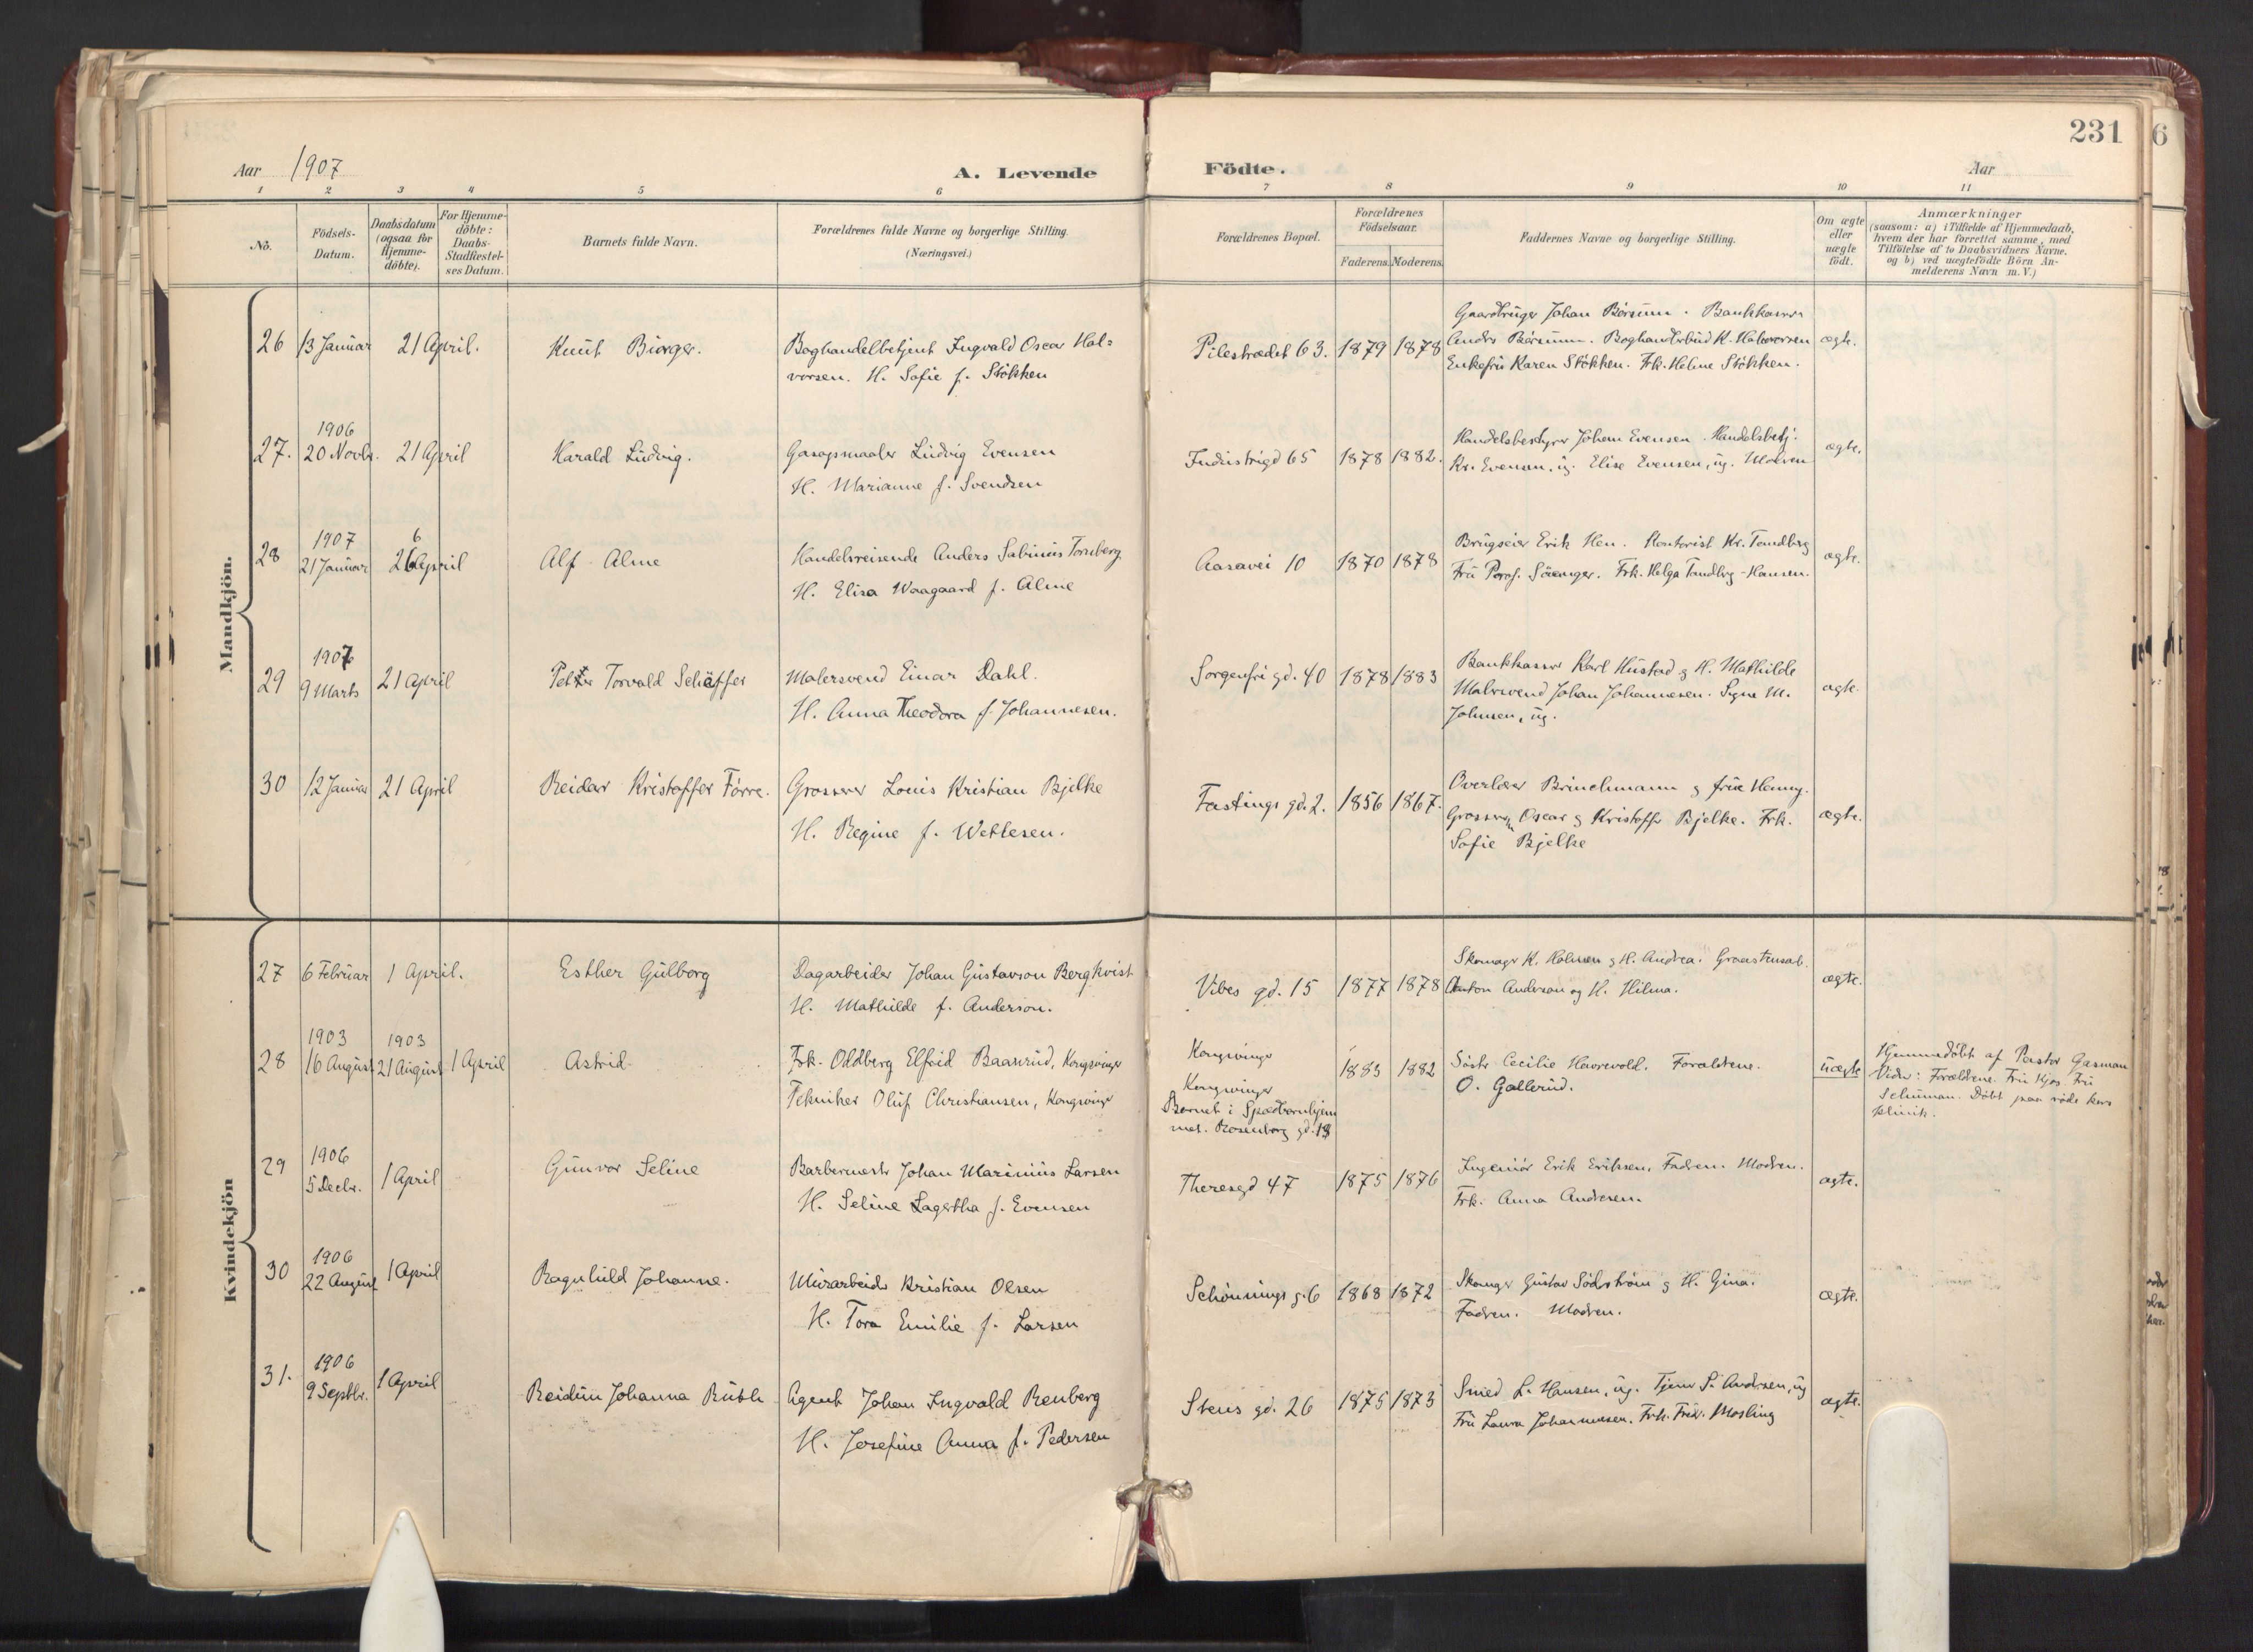 231
Aar 1907
A. Levende Födte.
Aar
1 2 3 4 5 6 7 8 9 10 11
No.
Födsels-Datum.
Daabsdatum (ogsaa for Hjemmedöbte).
For Hjemmedöbte: Daabs-Stadfæstelses Datum.
Barnets fulde Navn.
Forældrenes fulde Navne og borgerlige Stilling.
(Næringsvei.)
Forældrenes Bopæl.
Forældrenes Födselsaar.
Faderens. Moderens.
Faddernes Navne og borgerlige Stilling.
Om ægte eller uægte födt.
Anmærkninger
(saasom: a) i Tilfælde af Hjemmedaab,
hvem der har forrettet samme, med
Tilföielse af to Daabsvidners Navne,
og b) ved uægtefödte Börn An-
melderens Navn m. V.)
Mandkjön.
26 13 Januar 21 April. Knut Birger.
Boghandelbetjent Ingvald Oscar Hal-
vorsen. H. Sofie f. Stökken
Pilestrædet 63. 1879 1878
Gaardbruger Johan Börsum. Bankkasserer
Anders Börsum. Boghandlerbud K. Halvorsen
Enkefru Karen Stökken. Frk. Helene Stökken.
ægte.
1906
27. 20 Novbr. 21 April Harald Ludvig.
Gasopmaaler Ludvig Evensen
H. Marianne f. Svendsen
Industrigd 65 1878 1882.
Handelsbestyrer Johan Evensen. Handelsbetj.
Kr. Evensen, ug. Elise Evensen, ug. Moderen
ægte.
1907
28 21 Januar 26 April Alf Alme
Handelsreisende Anders Sabinius Tornberg
H. Elisa Waagaard f. Alme
Aasavei 10 1870 1878
Brugseier Erik Hen. Kontorist Kr. Tandberg
Fru Prof. Sörenger. Frk. Helga Tandbrg-Hansen.
ægte.
1907
29 9 Marts 21 April Petter Torvald Schäffer
Malersvend Einar Dahl.
H. Anna Theodora f. Johannesen.
Sorgenfri gd. 40 1878 1883
Bankkasserer Karl Hustad og H. Mathilde
Malersvend Johan Johannesen. Signe M.
Johnsen, ug.
ægte.
30 12 Januar 21 April Reidar Kristoffer Förre.
Grosserer Louis Kristian Bjelke
H. Regine f. Wettesen.
Fastings gd. 2. 1856 1867.
Overlærer Brinchmann og frue Henny.
Grossererne Oscar og Kristoffer Bjelke. Frk.
Sofie Bjelke
ægte.
Kvindekjön
27 6 Februar 1 April. Esther Gulborg
Dagarbeider Johan Gustavson Bergkvist
H. Mathilde f. Anderson.
Vibes gd. 15 1877 1878
Skomager K. Holmsen og H. Andrea. Graastensarb.
Anton Anderson og H. Hilma.
ægte.
1903 1903
28 16 August 21 August 1 April Astrid.
Frk. Oldberg Elfrid Baasrud, Kongsvinger
Tekniker Oluf Christiansen, Kongsvinger
Kongsvinger
Kongsvinger
Barnet i Spædbarnhjem
met. Rosenborg gd. 18
1883 1882
Söster Cecilie Haarevold. Forældrene.
O. Gallerud.
uægte
Hjemmedöbt af Pastor Gasman
Vidner: Forældrene. Fru Kjos. Fru
Schuman. Döbt paa röde kors
klinik.
1906
29 5 Decbr. 1 April Gunvor Seline
Barbermester Johan Marinius Larsen
H. Seline Lagertha f. Evensen
Theresgd 47 1875 1876
Ingeniör Erik Eriksen, Faderen. Moderen.
Frk. Anna Andresen.
ægte.
1906
30 22 August 1 April Ragnhild Johanne.
Murarbeider Kristian Olsen
H. Tora Emilie f. Larsen
Schönnings g. 6 1868 1872
Skomager Gustav Söderström og H. Gina.
Faderen. Moderen.
ægte.
1906
31. 9 Septbr. 1 April Reidun Johanna Ruth
Agent Johan Ingvald Renberg
H. Josefine Anna f. Pedersen
Stens gd. 26 1875 1873
Smed L. Hansen, ug. Tjener S. Andersen, ug
Fru Laura Johannesen. Frk. Fred. Mosling
ægte.